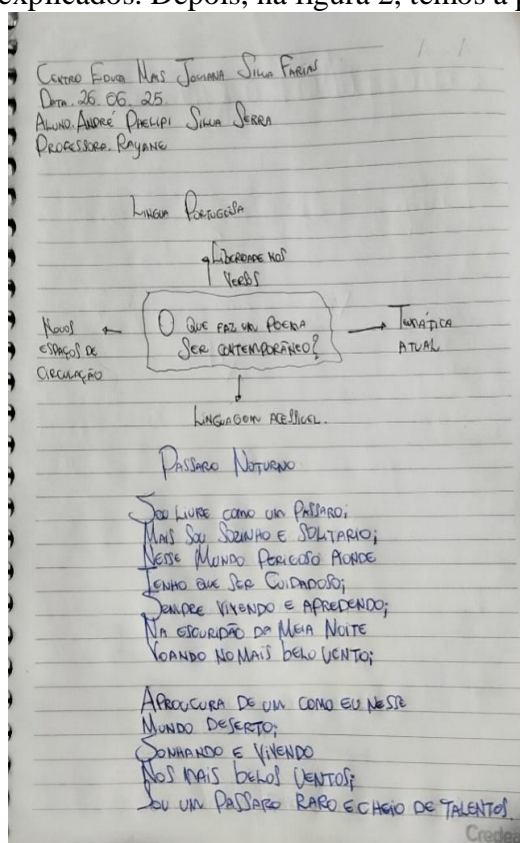 explicados. Depois, na figura 2, temos a p
Centro Educa Mais Joviana Silva Farias
Data. 26. 06. 25
Aluno. André Phelipi Silva Serra
Professora. Rayane
Lingua Portuguesa
Liberdade nos
Verbs
Novos
espaços de
circulação
O que faz um poema
ser contemporâneo?
Temática
atual
Linguagem acessivel.
Passaro Noturno
Sou livre como um passaro;
Mais sou sozinho e solitario;
Nesse mundo perigoso aonde
Tenho que ser cuidadoso;
Sempre vivendo e apredendo;
Na escuridão da meia noite
Voando no mais belo vento;
Aproucura de um como eu nesse
mundo deserto;
Sonhando e vivendo
Nos mais belos ventos;
Sou um passaro raro e cheio de talentos.